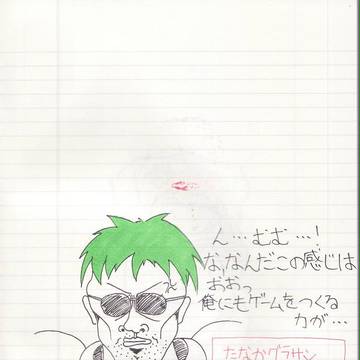 ん…むむ…!
な,なんだこの感じは
おおっ
俺にもゲームをつくる
力が…
たなかグラサン